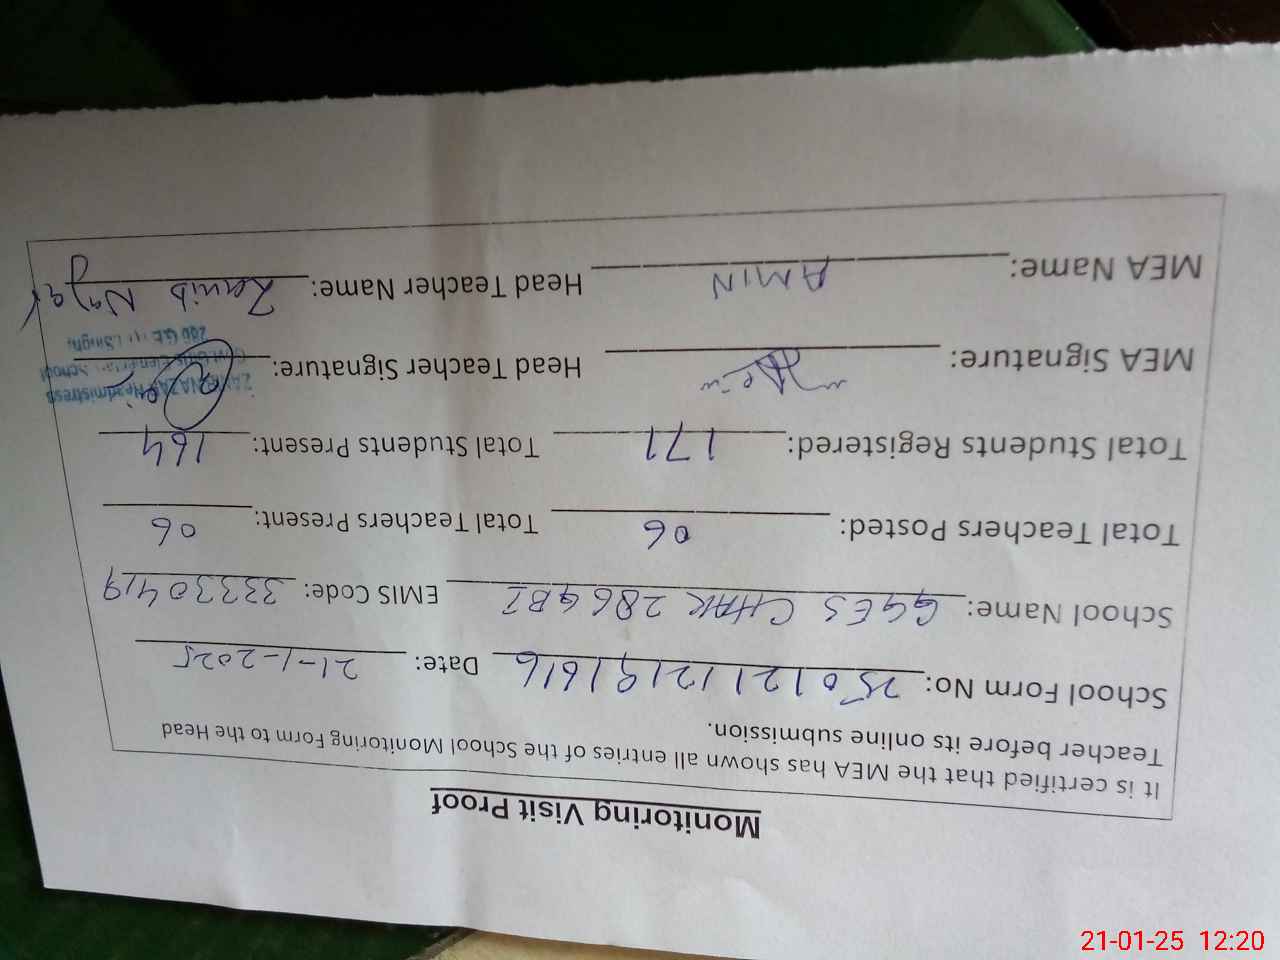 Monitoring Visit Proof
It is certified that the MEA has shown all entries of the School Monitoring Form to the Head
Teacher before its online submission.
School Form No: 25012112191616 Date: 21-1-2025
School Name: GGES CHAK 286 GB I EMIS Code: 33330419
Total Teachers Posted: 06 Total Teachers Present: 06
Total Students Registered: 171 Total Students Present: 164
MEA Signature: Head Teacher Signature:
Headmistress
School
MEA Name: AMIN Head Teacher Name: Zanib Nazar
21-01-25 12:20